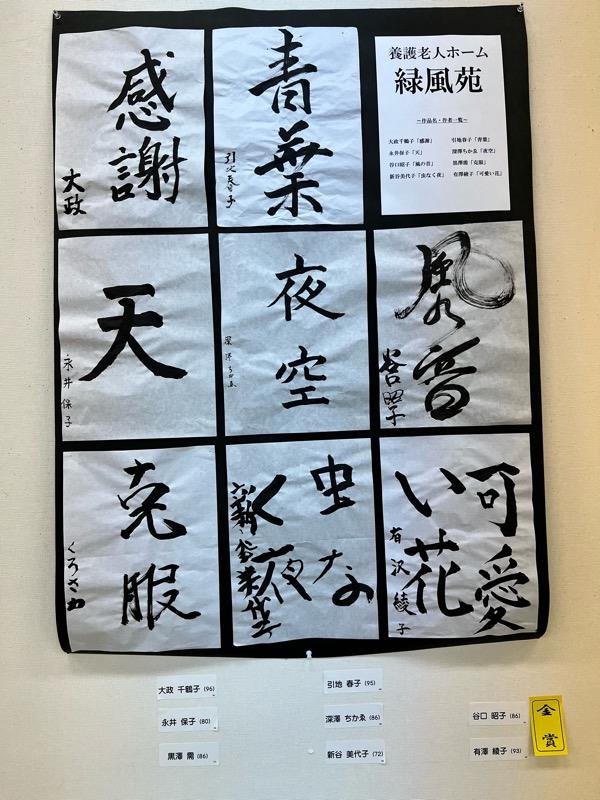 感謝
大政
青葉
引地春子
養護老人ホーム
緑風苑
~作品名・作者一覧~
大政千鶴子「感謝」 引地春子「青葉」
永井保子「天」 深澤ちかゑ「夜空」
谷口昭子「風の音」 黒澤需「克服」
新谷美代子「虫なく夜」 有澤綾子「可愛い花」
天
永井保子
夜空
深澤ちかゑ
風の音
谷口昭子
克服
くろさわ
虫な
く夜
新谷美代子
可愛
い花
有沢綾子
大政 千鶴子 (96)
引地 春子 (95)
永井 保子 (80)
深澤 ちかゑ (86)
谷口 昭子 (86)
黒澤 需 (86)
新谷 美代子 (72)
有澤 綾子 (93)
金賞